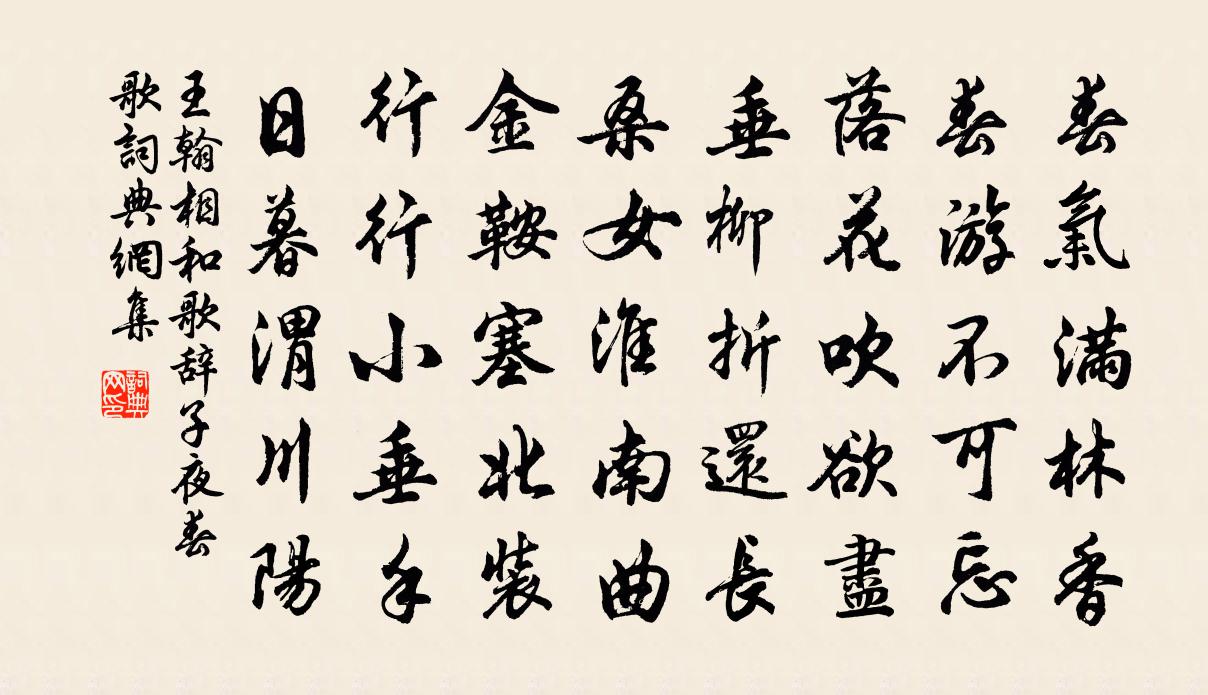 春氣滿林香
春游不可忘
落花吹欲盡
垂柳折還長
桑女淮南曲
金鞍塞北裝
行行小垂手
日暮渭川陽
王翰相和歌辞子夜春
歌詞典網集
詞典網印